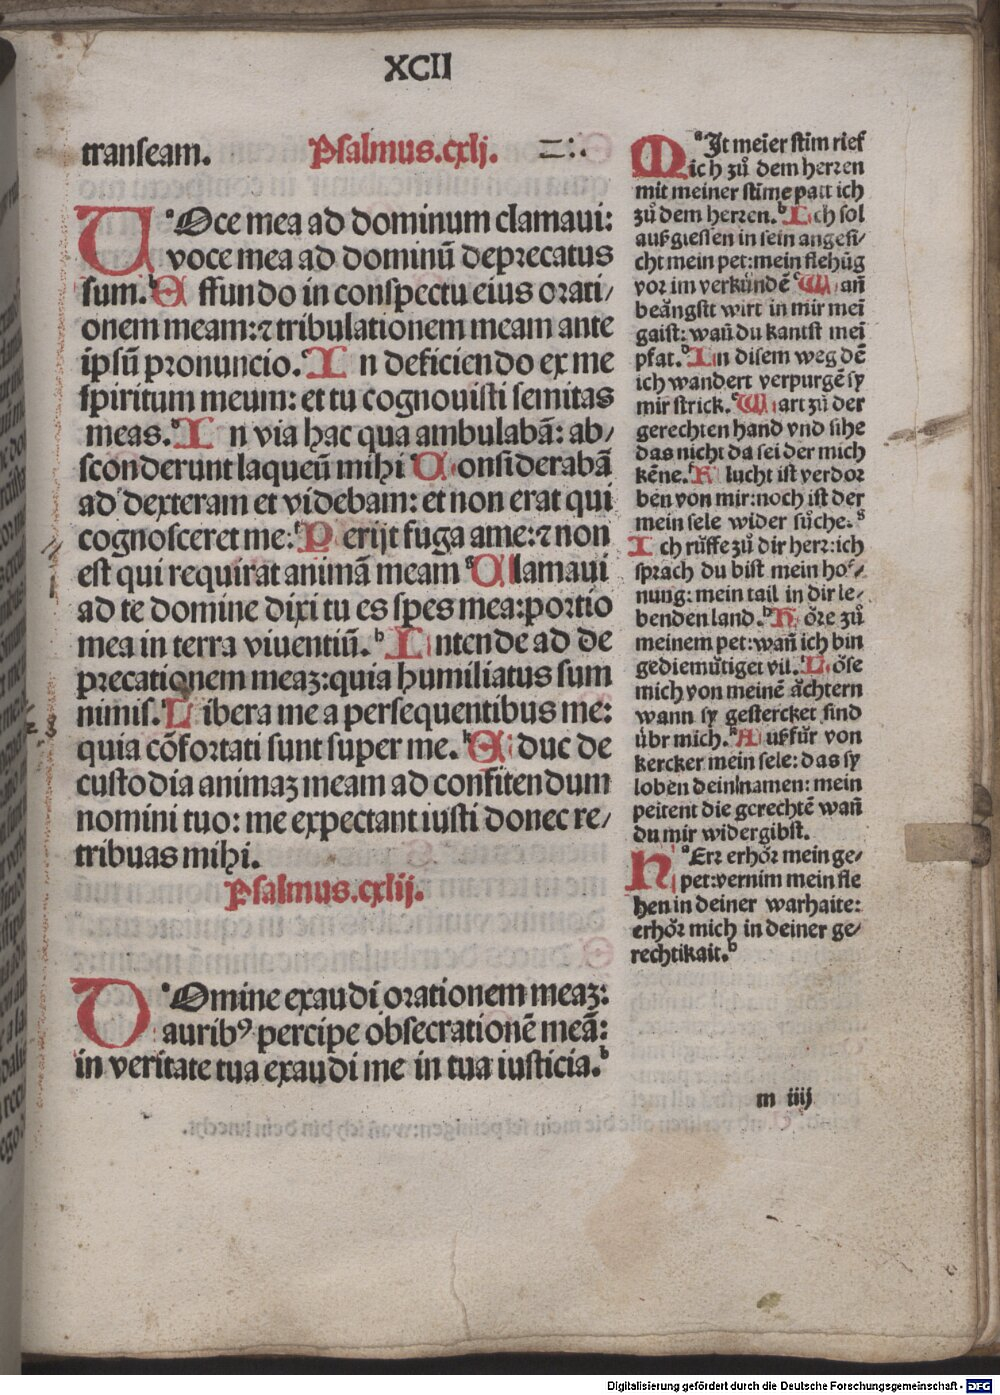 XCII
transeam. Psalmus.cxlj. =:.
UOce mea ad dominum clamaui:
voce mea ad dominū deprecatus
sum. Effundo in conspectu eius orati/
onem meam:⁊ tribulationem meam ante
ip̄sū pronuncio. In deficiendo ex me
spiritum meum: et tu cognouisti semitas
meas. In via hac qua ambulabā: ab/
sconderunt laqueū mihi Considerabā
ad dexteram et videbam: et non erat qui
cognosceret me: Perijt fuga ame:⁊ non
est qui requirat animā meam Clamaui
ad te domine dixi tu es spes mea:portio
mea in terra viuentiū. Intende ad de
precationem meaꝫ:quia humiliatus sum
nimis. Libera me a persequentibus me:
quia cōfortati sunt super me. Educ de
custodia animaꝫ meam ad confitendum
nomini tuo: me expectant iusti donec re/
tribuas mihi.
Psalmus.cxlij.
DOmine exaudi orationem meaꝫ:
auribꝰ percipe obsecrationē meā:
in veritate tua exaudi me in tua iusticia.
MIt meīer stim rief
ich zuͦ dem herren
mit meiner stīme patt ich
zuͦ dem herren. Ich sol
außgiessen in sein angesi/
cht mein pet:mein flehūg
vor im verkündē Wañ
beängstt wirt in mir mei
gaist: wañ du kantst mei
pfat. In disem weg dē
ich wandert verpurgē sy
mir strick. Wart zuͦ der
gerechten hand vnd sihe
das nicht da sei der mich
kēne. Flucht ist verdor
ben von mir:noch ist der
mein sele wider suͦche.
Ich ruͦffe zuͦ dir herr:ich
sprach du bist mein hof/
nung: mein tail in dir le/
benden land. Höre zuͦ
meinem pet:wañ ich bin
gediemuͤtiget vil. Löse
mich von meinē ächtern
wann sy gestercket sind
übr mich. Außfür von
kercker mein sele: das sy
loben dein namen: mein
peitent die gerechtē wañ
du mir widergibst.
HErr erhör mein ge/
pet:vernim mein fle
hen in deiner warhaite:
erhör mich in deiner ge/
rechtikait.
m iiij
Digitalisierung gefördert durch die Deutsche Forschungsgemeinschaft - DFG